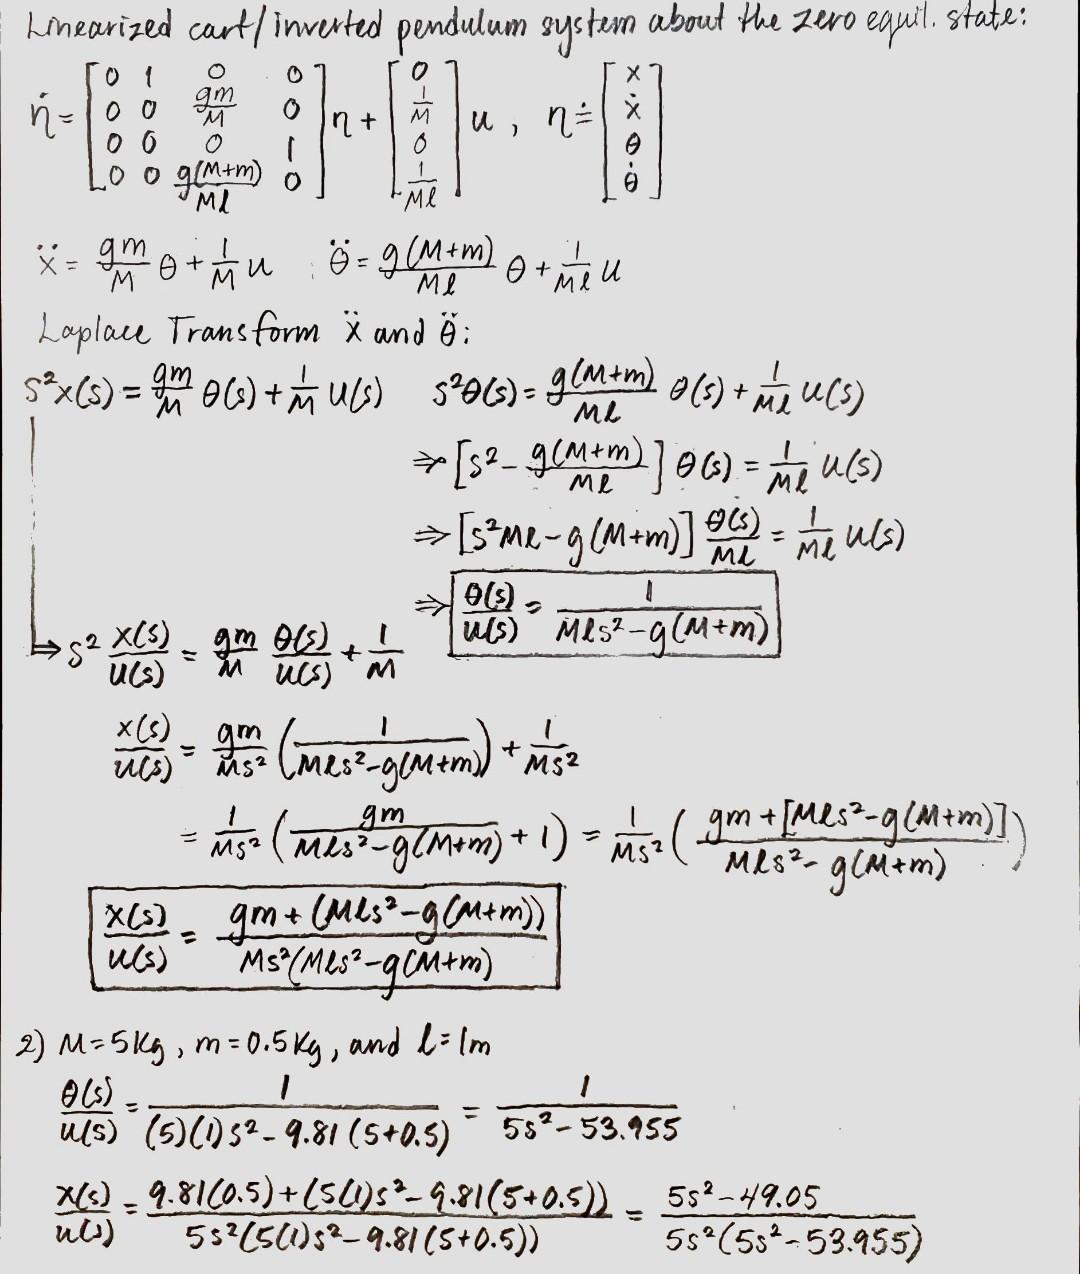 Linearized cart/inverted pendulum system about the zero equil. state:
η̇ = [0 1 0 0; 0 0 gm/M 0; 0 0 0 1; 0 0 g(M+m)/Ml 0] η + [0; 1/M; 0; 1/Ml] u , η ≐ [x; ẋ; θ; θ̇]
ẍ = gm/M θ + 1/M u ; θ̈ = g(M+m)/Ml θ + 1/Ml u
Laplace Transform ẍ and θ̈:
s²x(s) = gm/M θ(s) + 1/M u(s) s²θ(s) = g(M+m)/Ml θ(s) + 1/Ml u(s)
⇒ [s² - g(M+m)/Ml] θ(s) = 1/Ml u(s)
⇒ [s²Ml - g(M+m)] θ(s)/Ml = 1/Ml u(s)
⇒ θ(s)/u(s) = 1/(Mls² - g(M+m))
⇒ s² x(s)/u(s) = gm/M θ(s)/u(s) + 1/M
x(s)/u(s) = gm/Ms² (1/(Mls² - g(M+m))) + 1/Ms²
= 1/Ms² (gm/(Mls² - g(M+m)) + 1) = 1/Ms² ((gm + [Mls² - g(M+m)])/(Mls² - g(M+m)))
x(s)/u(s) = (gm + (Mls² - g(M+m)))/(Ms²(Mls² - g(M+m))
2) M = 5Kg , m = 0.5Kg, and l = 1m
θ(s)/u(s) = 1/((5)(1)s² - 9.81(5+0.5)) = 1/(5s² - 53.955)
x(s)/u(s) = (9.81(0.5) + (5(1)s² - 9.81(5+0.5)))/(5s²(5(1)s² - 9.81(5+0.5))) = (5s² - 49.05)/(5s²(5s² - 53.955))